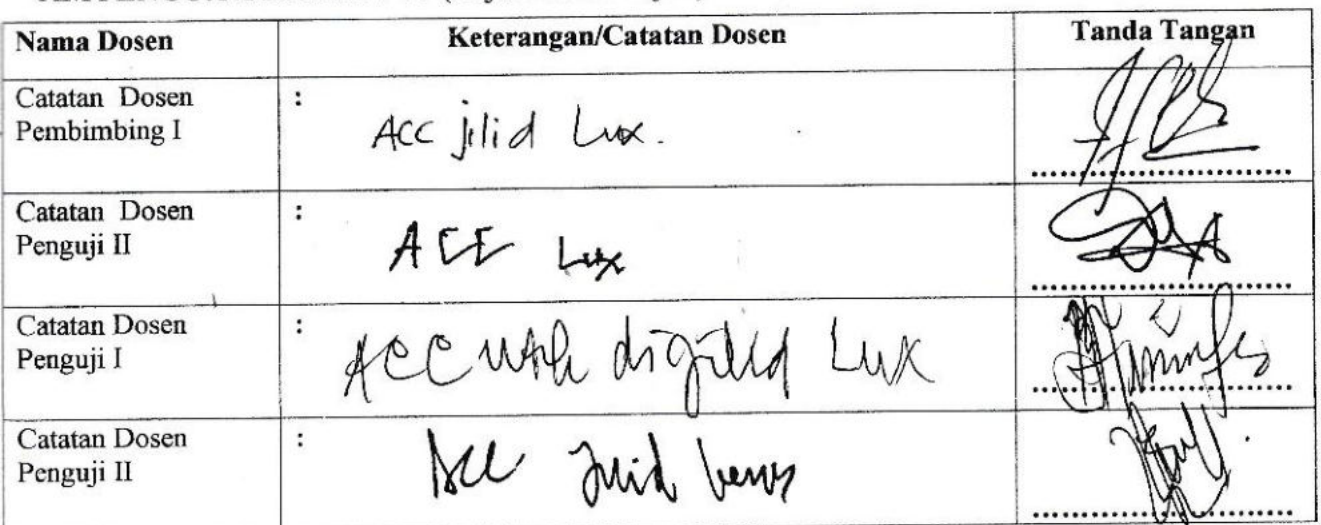 Nama Dosen Keterangan/Catatan Dosen Tanda Tangan
Catatan Dosen :
Pembimbing I
ACC jilid Lux.
Catatan Dosen :
Penguji II
ACC Lux
Catatan Dosen :
Penguji I
ACC untuk dijilid Lux
Catatan Dosen :
Penguji II
Acc Jilid